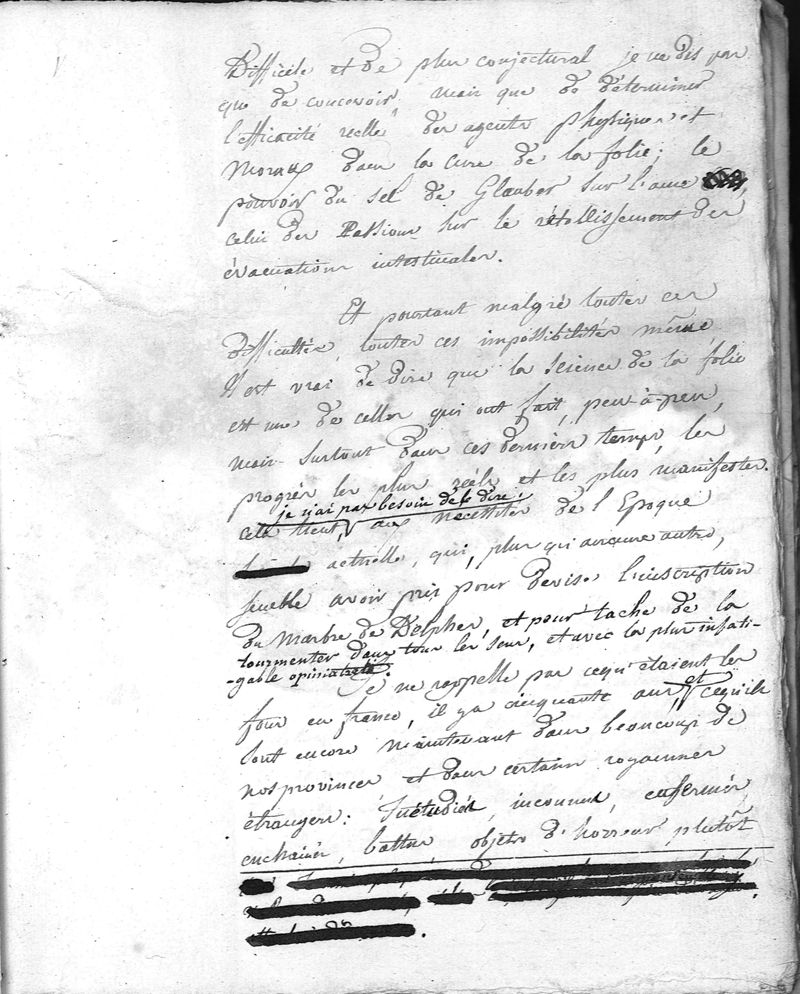 Difficile et de plus conjectural je ne dis pas
que de concevoir, mais que de déterminer
l'efficacité reelle des agents physiques et
Moraux dans la cure de la folie; le
pouvoir du sel de Glauber sur l'ame
celui des Passions sur le rétablissement des
évacuations intestinales.
Et pourtant malgré toutes ces
difficultés, toutes ces impossibilités même,
Il est vrai de dire que la science de la folie
est une de celles qui ont fait, peu-à-peu,
mais surtout dans ces derniers temps, les
progrès les plus réels et les plus manifestes.
je n'ai pas besoin de le dire,
Cela tient, aux necessités de l'Epoque
actuelle, qui, plus qu'aucune autre,
semble avoir pris pour devise l'inscription
du Marbre de Delphes, et pour tache de la
tourmenter dans tous les sens, et avec la plus infati-
-gable opiniatreté.
Je ne rappelle pas ce qu'étaient les
fous en france, il y a cinquante ans, et ce qu'ils
sont encore maintenant dans beaucoup de
nos provinces, et dans certains royaumes
étrangers: Inétudiés, inconnus, enfermés,
enchainés, battus objets d'horreur plutôt